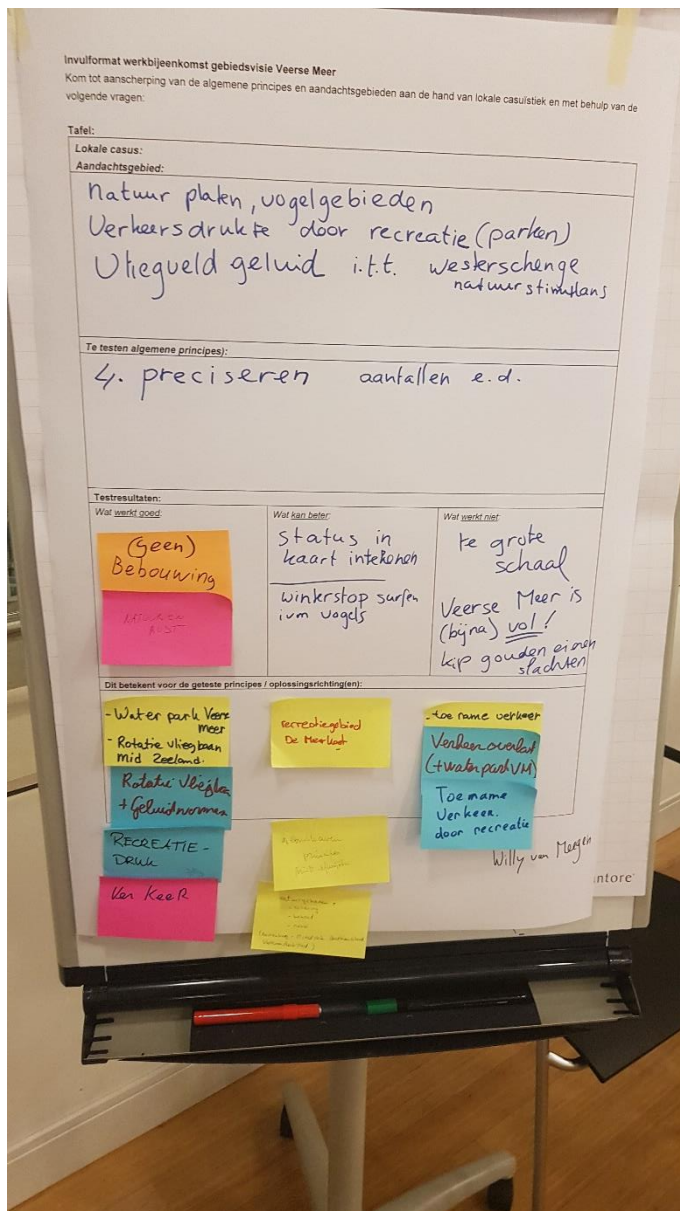 Invulformat werkbijeenkomst gebiedsvisie Veerse Meer
Kom tot aanscherping van de algemene principes en aandachtsgebieden aan de hand van lokale casuïstiek en met behulp van de
volgende vragen:
Tafel:
Lokale casus:
Aandachtsgebied:
natuur platen, vogelgebieden
Verkeersdrukte door recreatie (parken)
Vliegveld geluid i.t.t. westerschenge
natuur stimulans
Te testen algemene principes):
4. preciseren aantallen e.d.
Testresultaten:
Wat werkt goed:
(Geen)
Bebouwing
NATUUR EN
RUST
Wat kan beter:
status in
kaart intekenen
winterstop surfen
ivm vogels
Wat werkt niet:
te grote
schaal
Veerse Meer is
(bijna) vol!
kip gouden eieren
slachten
Dit betekent voor de geteste principes / oplossingsrichting(en):
- Water park Veerse
meer
- Rotatie vliegbaan
mid Zeeland.
Rotatie Vliegbaan
+ Geluidnormen
RECREATIE-
DRUK
VerKeeR
recreatiegebied
De Meerkoet
- toename verkeer
Verkeer overlast
(+ waterpark VM)
Toename
Verkeer.
door recreatie
Willy van Mergen
ntore